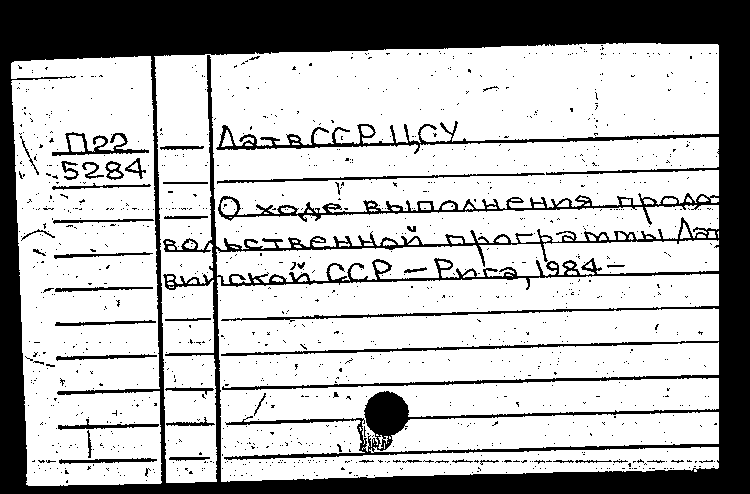 П22
5284
Латв ССР. ЦСУ.
О ходе выполнения продо
вольственной программы Лат
вийской ССР — Рига, 1984 —